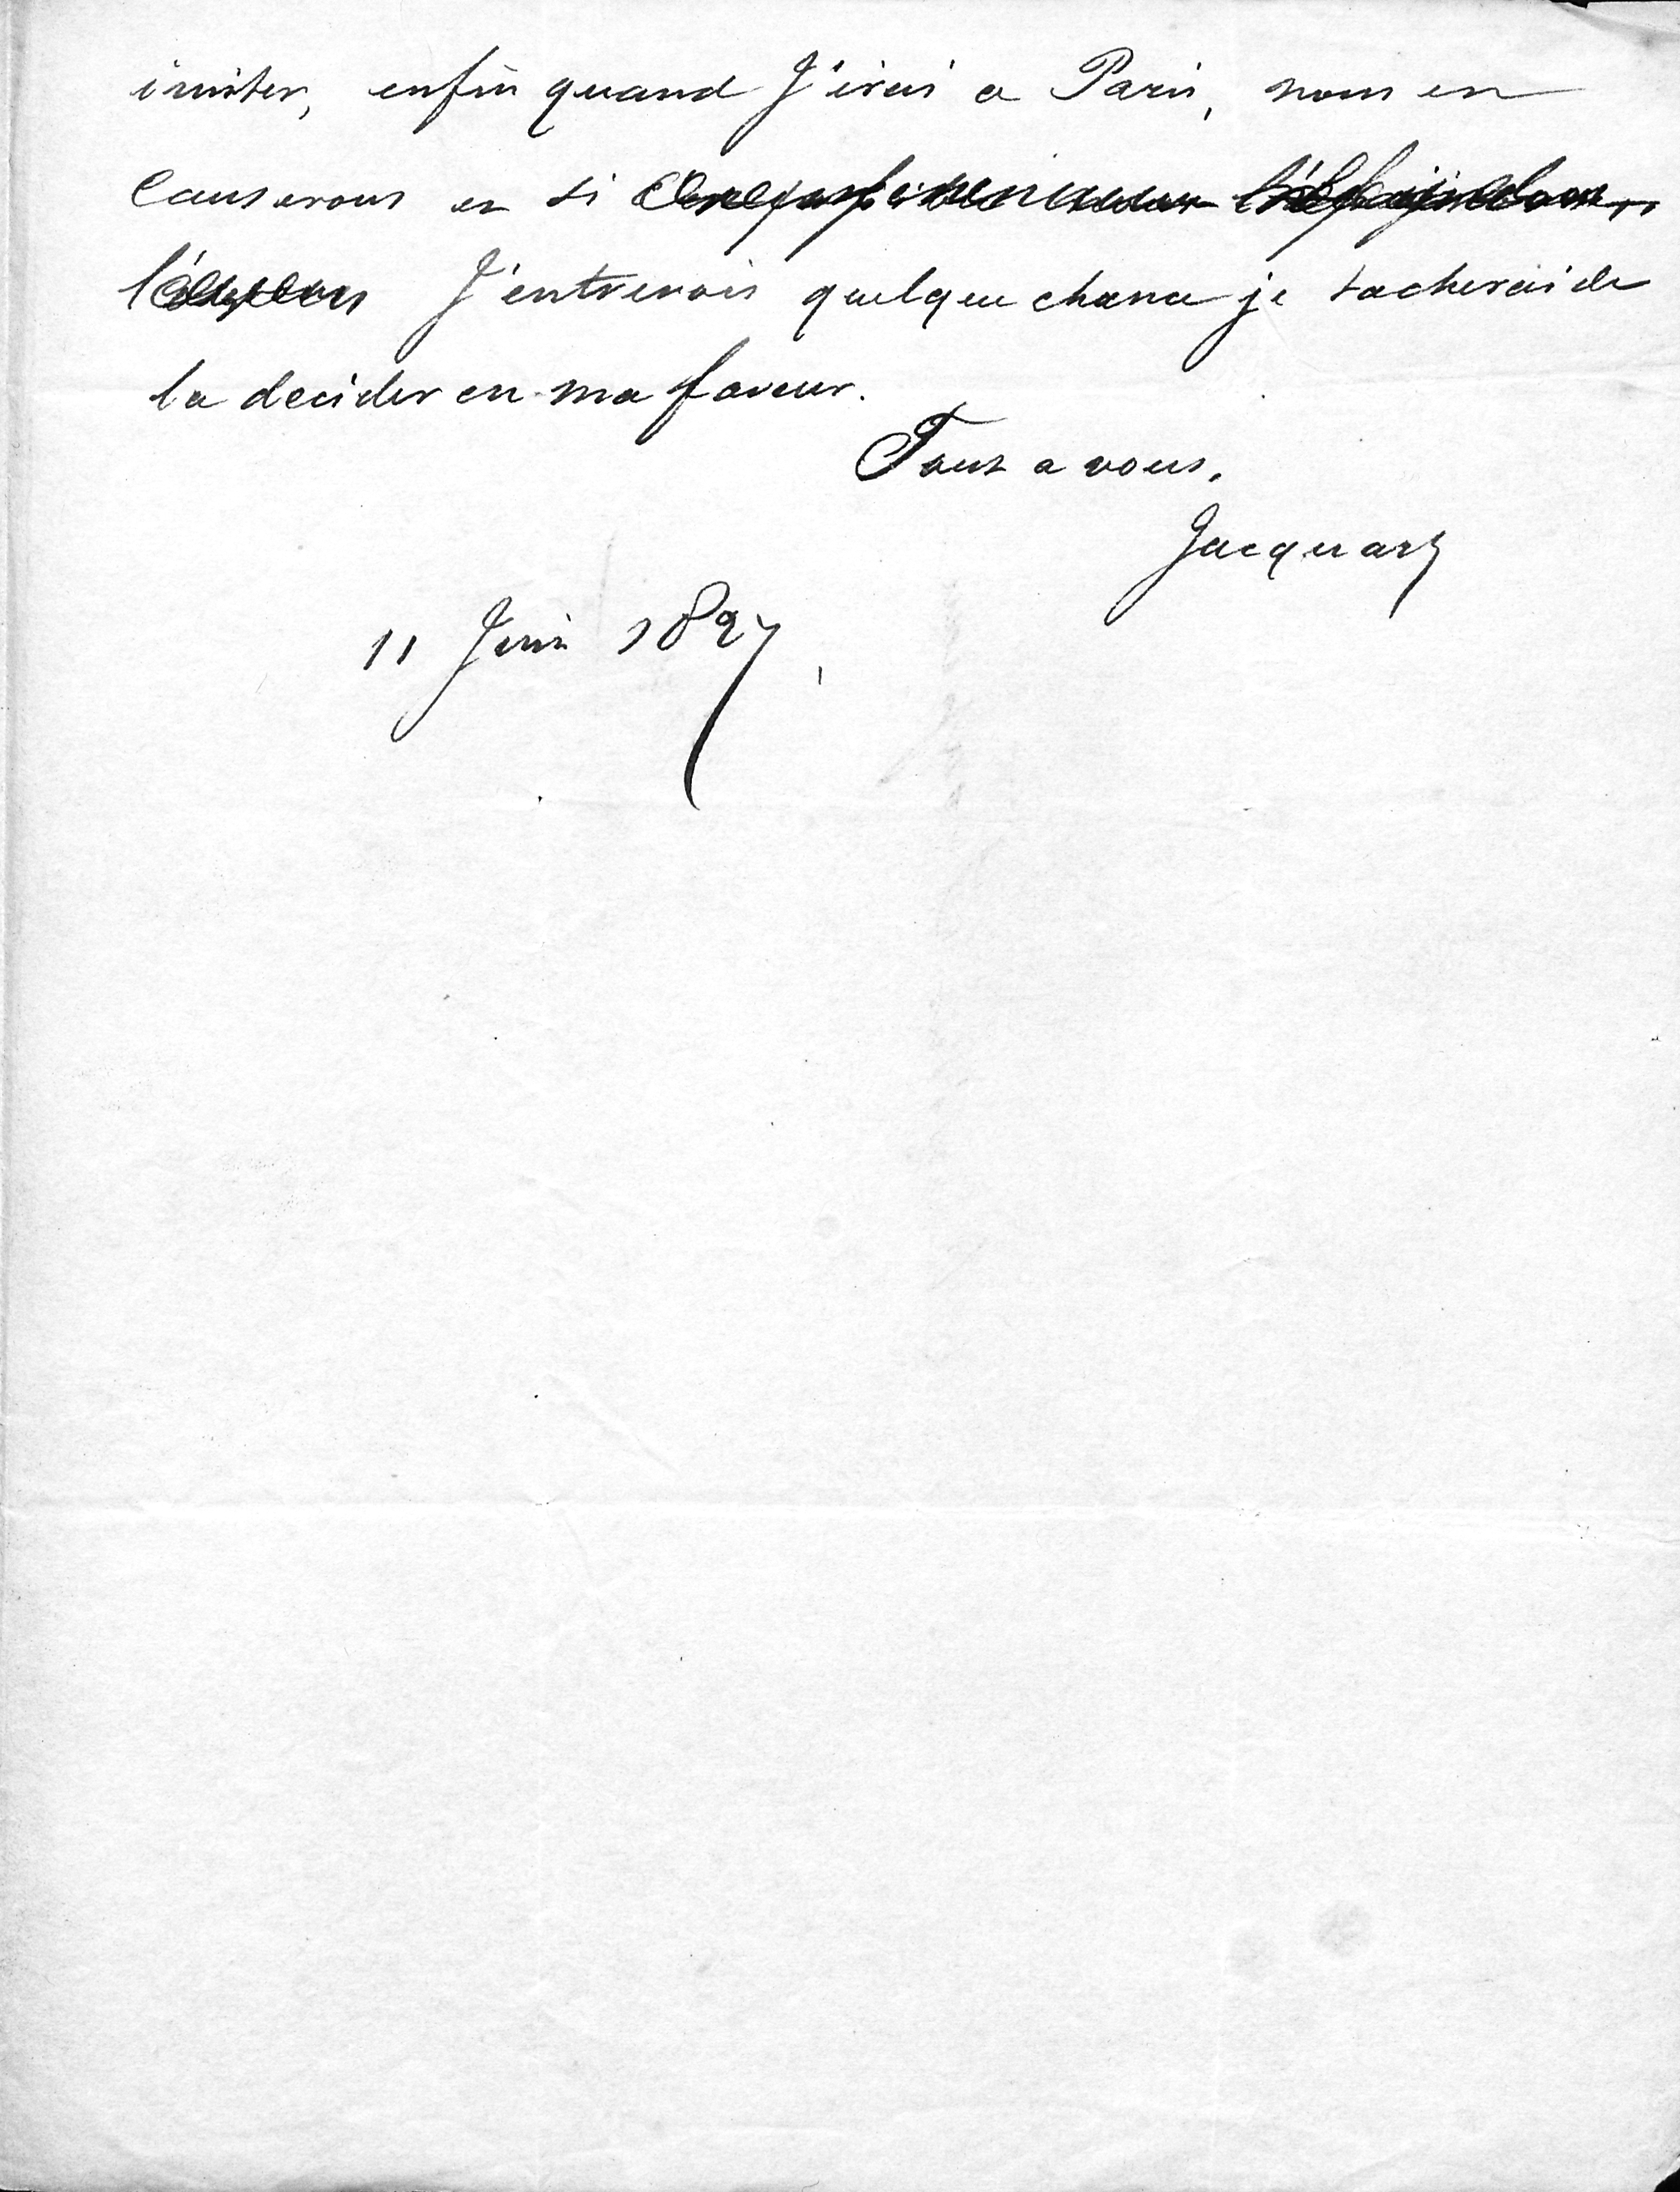 imiter, enfin quand J'irai a Paris, nous en
Causerons et si
J'entrevois quelque chance je tacherai de
la decider en ma faveur.
Tout a vous,
Jacquart
11 Juin 1897